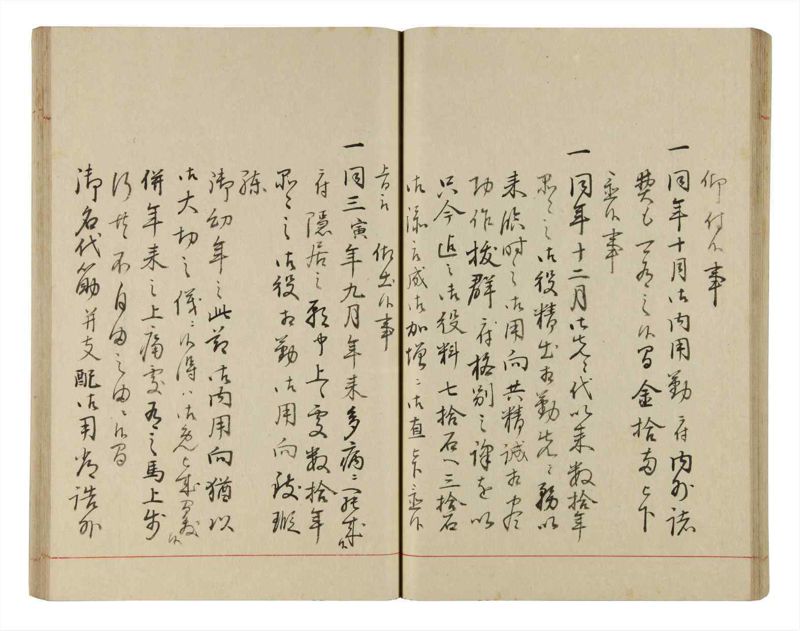 御付候事
一同年十月御内用勤ニ付内外諸
費も可有之候間金拾両被下
置候事
一同年十二月御先々代以来数拾年
品々之御役精出相勤先々務以
来臨時之御用向共精誠相尽
功作抜群ニ付格別之訳を以
只今迄之御役料七拾石へ三拾石
御添被成御加増ニ御直被下置候
旨被 仰出候事
一同三寅年九月年来多病ニ罷成候
付隠居之願申上候処数拾年
品々之御役相勤御用向
練
御幼年之此節御内用向猶以
御大切之儀ニ候得ハ
併年来之上痛処有之馬上歩
行共不自由之由ニ候間
御名代勤并支配御用